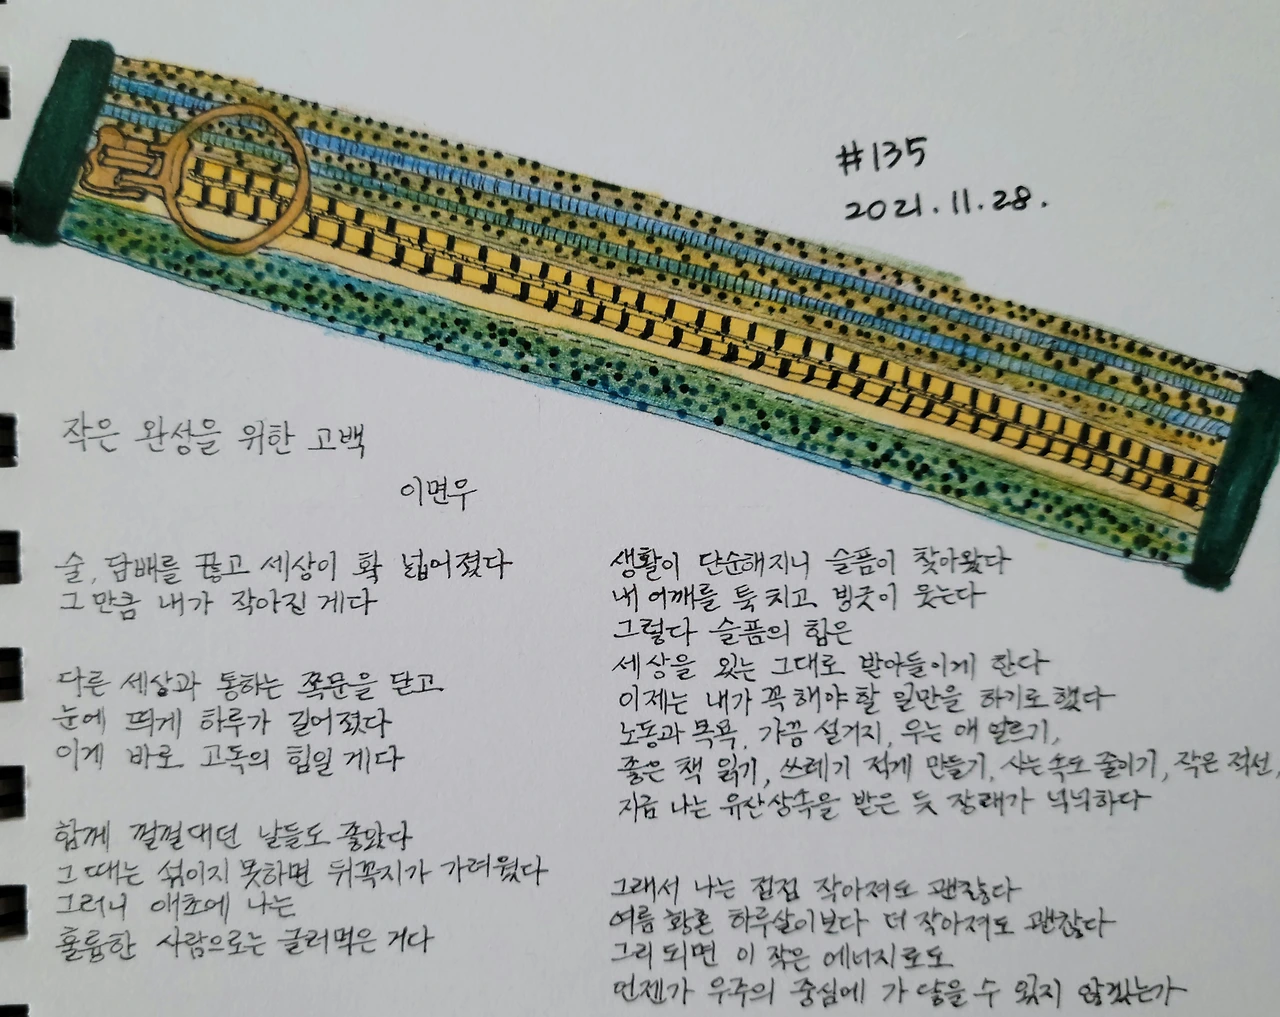 #135
2021.11.28.
작은 완성을 위한 고백
이면우
술, 담배를 끊고 세상이 확 넓어졌다
그만큼 내가 작아진 게다
다른 세상과 통하는 쪽문을 닫고
눈에 띄게 하루가 길어졌다
이게 바로 고독의 힘일 게다
함께 껄껄대던 날들도 좋았다
그 때는 섞이지 못하면 뒤꼭지가 가려웠다
그러니 애초에 나는
훌륭한 사람으로는 글러먹은 거다
생활이 단순해지니 슬픔이 찾아왔다
내 어깨를 툭 치고 빙긋이 웃는다
그렇다 슬픔의 힘은
세상을 있는 그대로 받아들이게 한다
이제는 내가 꼭 해야 할 일만을 하기로 했다
노동과 목욕, 가끔 설거지, 우는 애 얼르기,
좋은 책 읽기, 쓰레기 적게 만들기, 사는 속도 줄이기, 작은 적선,
지금 나는 유산상속을 받은 듯 장래가 넉넉하다
그래서 나는 점점 작아져도 괜찮다
여름 황혼 하루살이보다 더 작아져도 괜찮다
그리 되면 이 작은 에너지로도
언젠가 우주의 중심에 가 닿을 수 있지 않겠는가